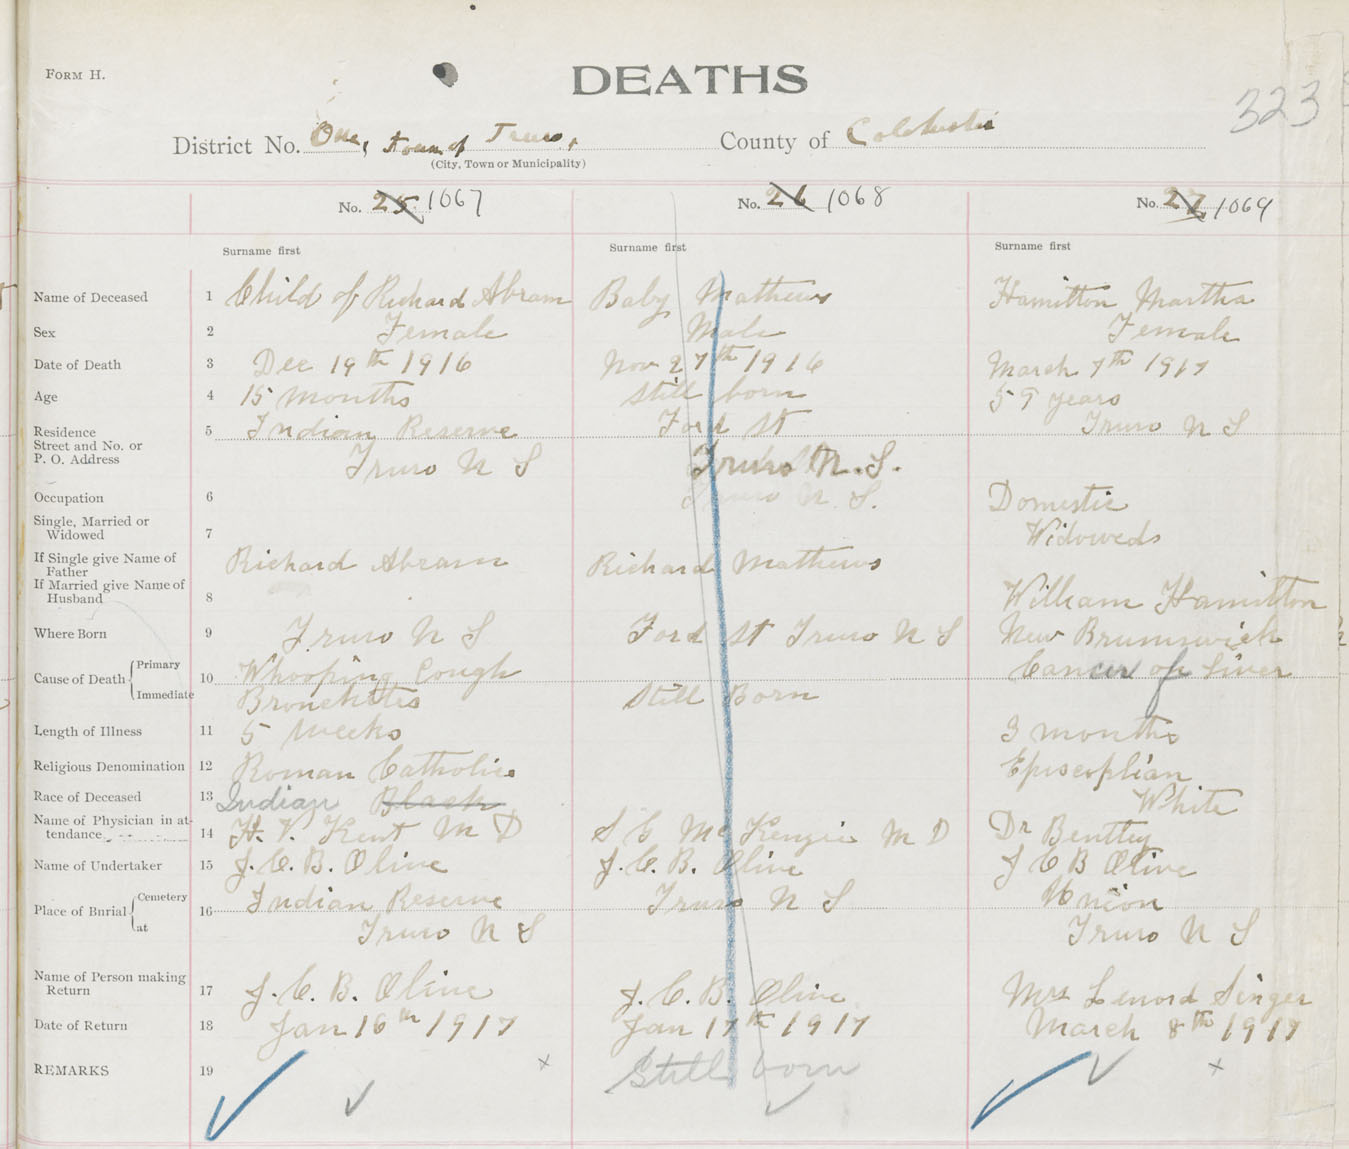 FORM H.
DEATHS
323
District No. One, Town of Truro, County of Colchester
(City, Town or Municipality)
No. 25 1067 No. 26 1068 No. 27 1069
Surname first Surname first Surname first
Name of Deceased 1 Child of Richard Abram Baby Mathews Hamilton Martha
Sex 2 Female Male Female
Date of Death 3 Dec 19th 1916 Nov 27th 1916 March 7th 1917
Age 4 15 months Still born 59 years
Residence 5 Indian Reserve Ford St Truro N S
Street and No. or
P. O. Address Truro N S Truro N.S.
Truro N.S.
Occupation 6 Domestic
Single, Married or
Widowed 7 Widoweds
If Single give Name of
Father Richard Abram Richard Mathews
If Married give Name of
Husband 8 William Hamilton
Where Born 9 Truro N S Ford St Truro N S New Brunswick
Cause of Death Primary 10 Whooping Cough Cancer of Liver
Immediate Bronchittis Still Born
Length of Illness 11 5 weeks 3 months
Religious Denomination 12 Roman Catholic Episcoplian
Race of Deceased 13 Indian Black White
Name of Physician in at-
tendance 14 H. V. Kent M D S G McKenzie M D Dr Bentley
Name of Undertaker 15 J. C. B. Olive J. C. B. Olive J C B Olive
Place of Burial Cemetery 16 Indian Reserve Truro N S Union
at Truro N S Truro N S
Name of Person making
Return 17 J. C. B. Olive J. C. B. Olive Mrs Lenord Singer
Date of Return 18 Jan 16th 1917 Jan 17th 1917 March 8th 1917
REMARKS 19 x Still born x